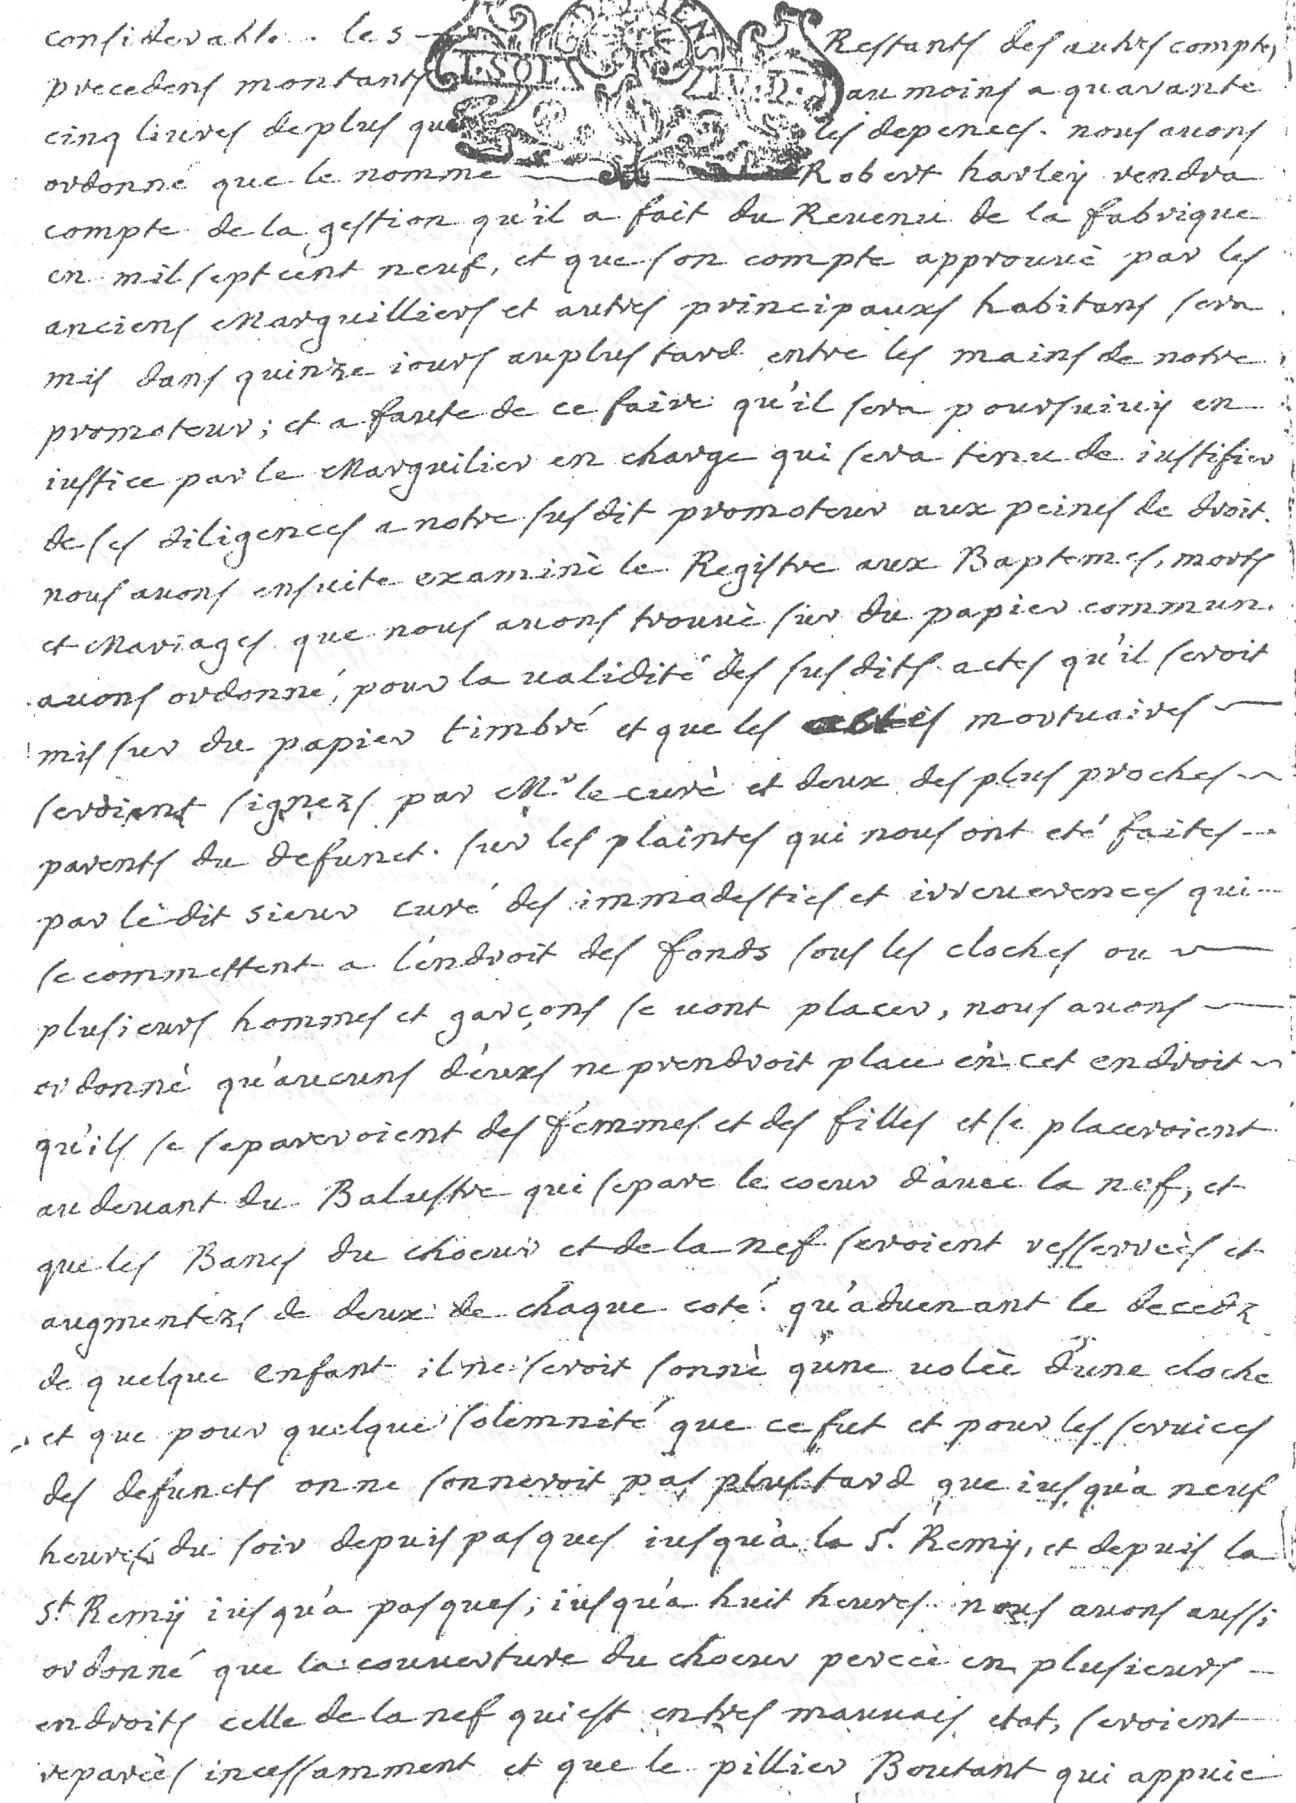 considerable. les Restants des autres comptes
precedens montants au moins a quarante
cinq liures de plus que les depences. nous auons
ordonné que le nommé Robert harleÿ rendra
compte de la gestion qu'il a fait du Reuenu de la fabrique
en mil sept cent neuf, et que son compte approuuè par les
anciens Marguilliers et autres principaux habitans sera
mis dans quinze iours au plus tard entre les mains de notre
promoteur; et a faute de ce faire qu'il sera poursuiuÿ en
iustice par le Marguilier en charge qui sera tenu de iustifier
de ses diligences a notre susdit promoteur aux peines de droit.
nous auons ensuite examinè le Registre aux Baptemes, morts
et Mariages que nous auons trouuè sur du papier commun.
auons ordonné, pour la validité des susdits actes qu'il seroit
mis sur du papier timbré et que les actes mortuaires
seroient signezs par Mr le curè et deux des plus proches
parents du defunct. sur les plaintes qui nous ont eté faites
par ledit sieur curé des immodesties et irreuerences qui
se commettent a l'endroit des fonds sous les cloches ou
plusieurs hommes et garçons se vont placer, nous auons
ordonnè qu'aucuns d'euxs ne prendroit place en cet endroit
qu'ils se separeroient des femmes et des filles et se placeroient
au deuant du Balustre qui separe le coeur d'auec la nef, et
que les Bancs du choeur et de la nef seroient resserreès et
augmentezs de deux de chaque coté. qu'aduenant le decedz
de quelque enfant il ne seroit sonnè qu'une volèe d'une cloche
et que pour quelque solemnité que ce fut et pour les seruices
des defuncts on ne sonneroit pas plus tard que iusqu'a neuf
heures du soir depuis pasques iusqu'a la St. Remÿ, et depuis la
St Remÿ iusqu'a pasques, iusqu'a huit heures. nous auons aussi
ordonné que la couuerture du choeur perceè en plusieurs
endroits celle de la nef qui est en tres mauuais etat, seroient
repareès incessamment et que le pillier Boutant qui appuie